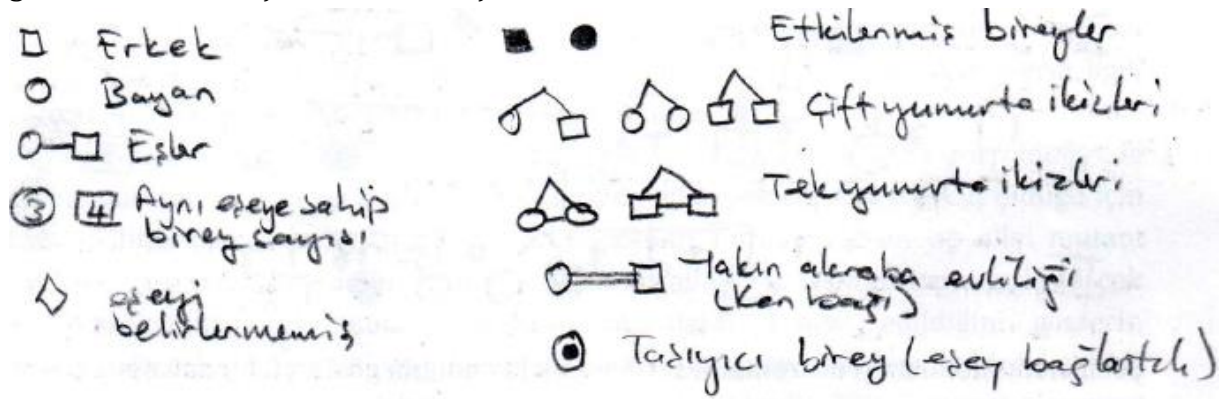 Erkek
Bayan
Eşler
3 4 Aynı eşeye sahip
birey sayısı
eşeyi
belirlenmemiş
Etkilenmiş bireyler
Çift yumurta ikizleri
Tek yumurta ikizleri
Yakın akraba evliliği
(Kan bağı)
Taşıyıcı birey (eşey bağlantılı)